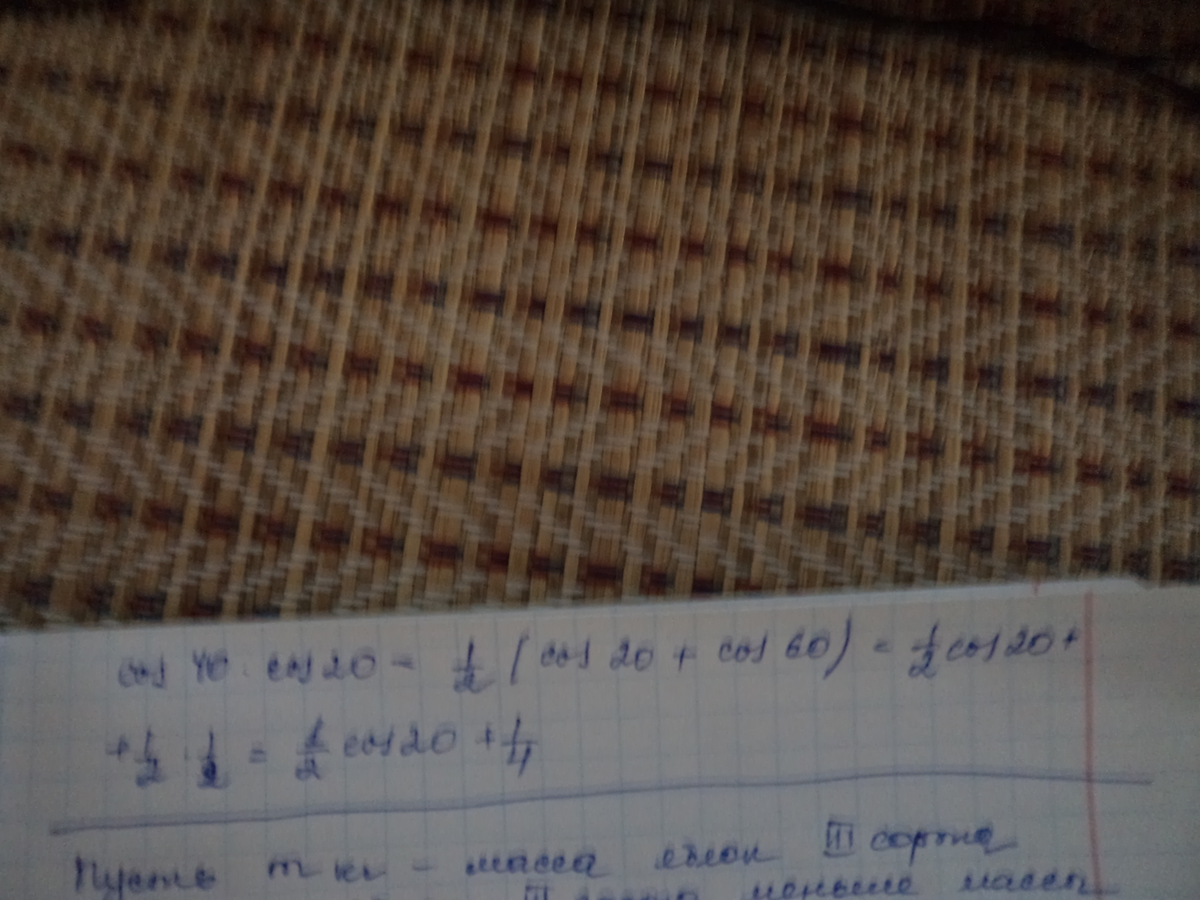 cos 40 · cos 20 = 1/2 (cos 20 + cos 60) = 1/2 cos 20 +
+ 1/2 · 1/2 = 1/2 cos 20 + 1/4
Пусть m кг - масса яблок III сорта
III сорта меньше массы